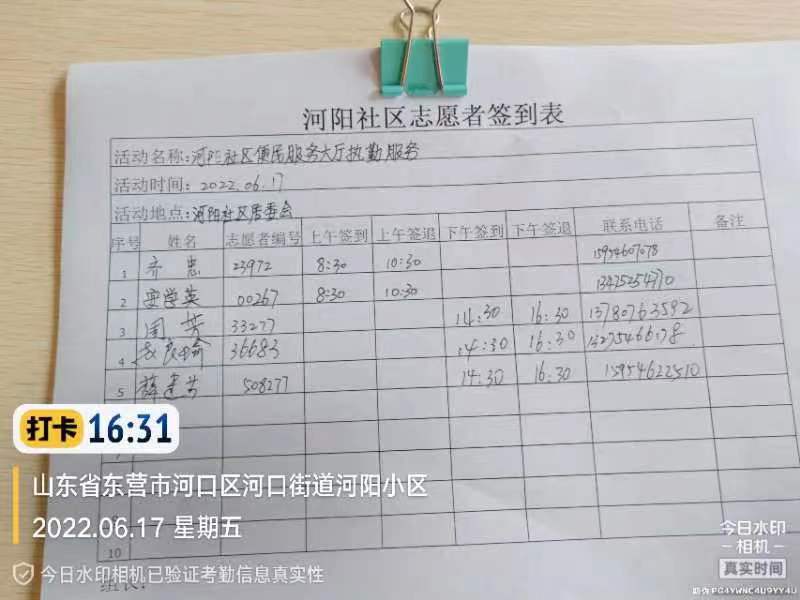 河阳社区志愿者签到表
活动名称:河阳社区便民服务大厅执勤服务
活动时间:2022.06.17
活动地点:河阳社区居委会
序号 姓名 志愿者编号 上午签到 上午签退 下午签到 下午签退 联系电话 备注
1 齐忠 23972 8:30 10:30 15954607078
2 安学英 00267 8:30 10:30 13425254770
3 周芳 33277 14:30 16:30 13780763592
4 36683 14:30 16:30
5 薛建芳 508277 14:30 16:30 15954622510
10
组长:
打卡 16:31
山东省东营市河口区河口街道河阳小区
2022.06.17 星期五
今日水印相机已验证考勤信息真实性
今日水印
-相机-
真实时间
防伪 PG4YWNC4U9YY4U